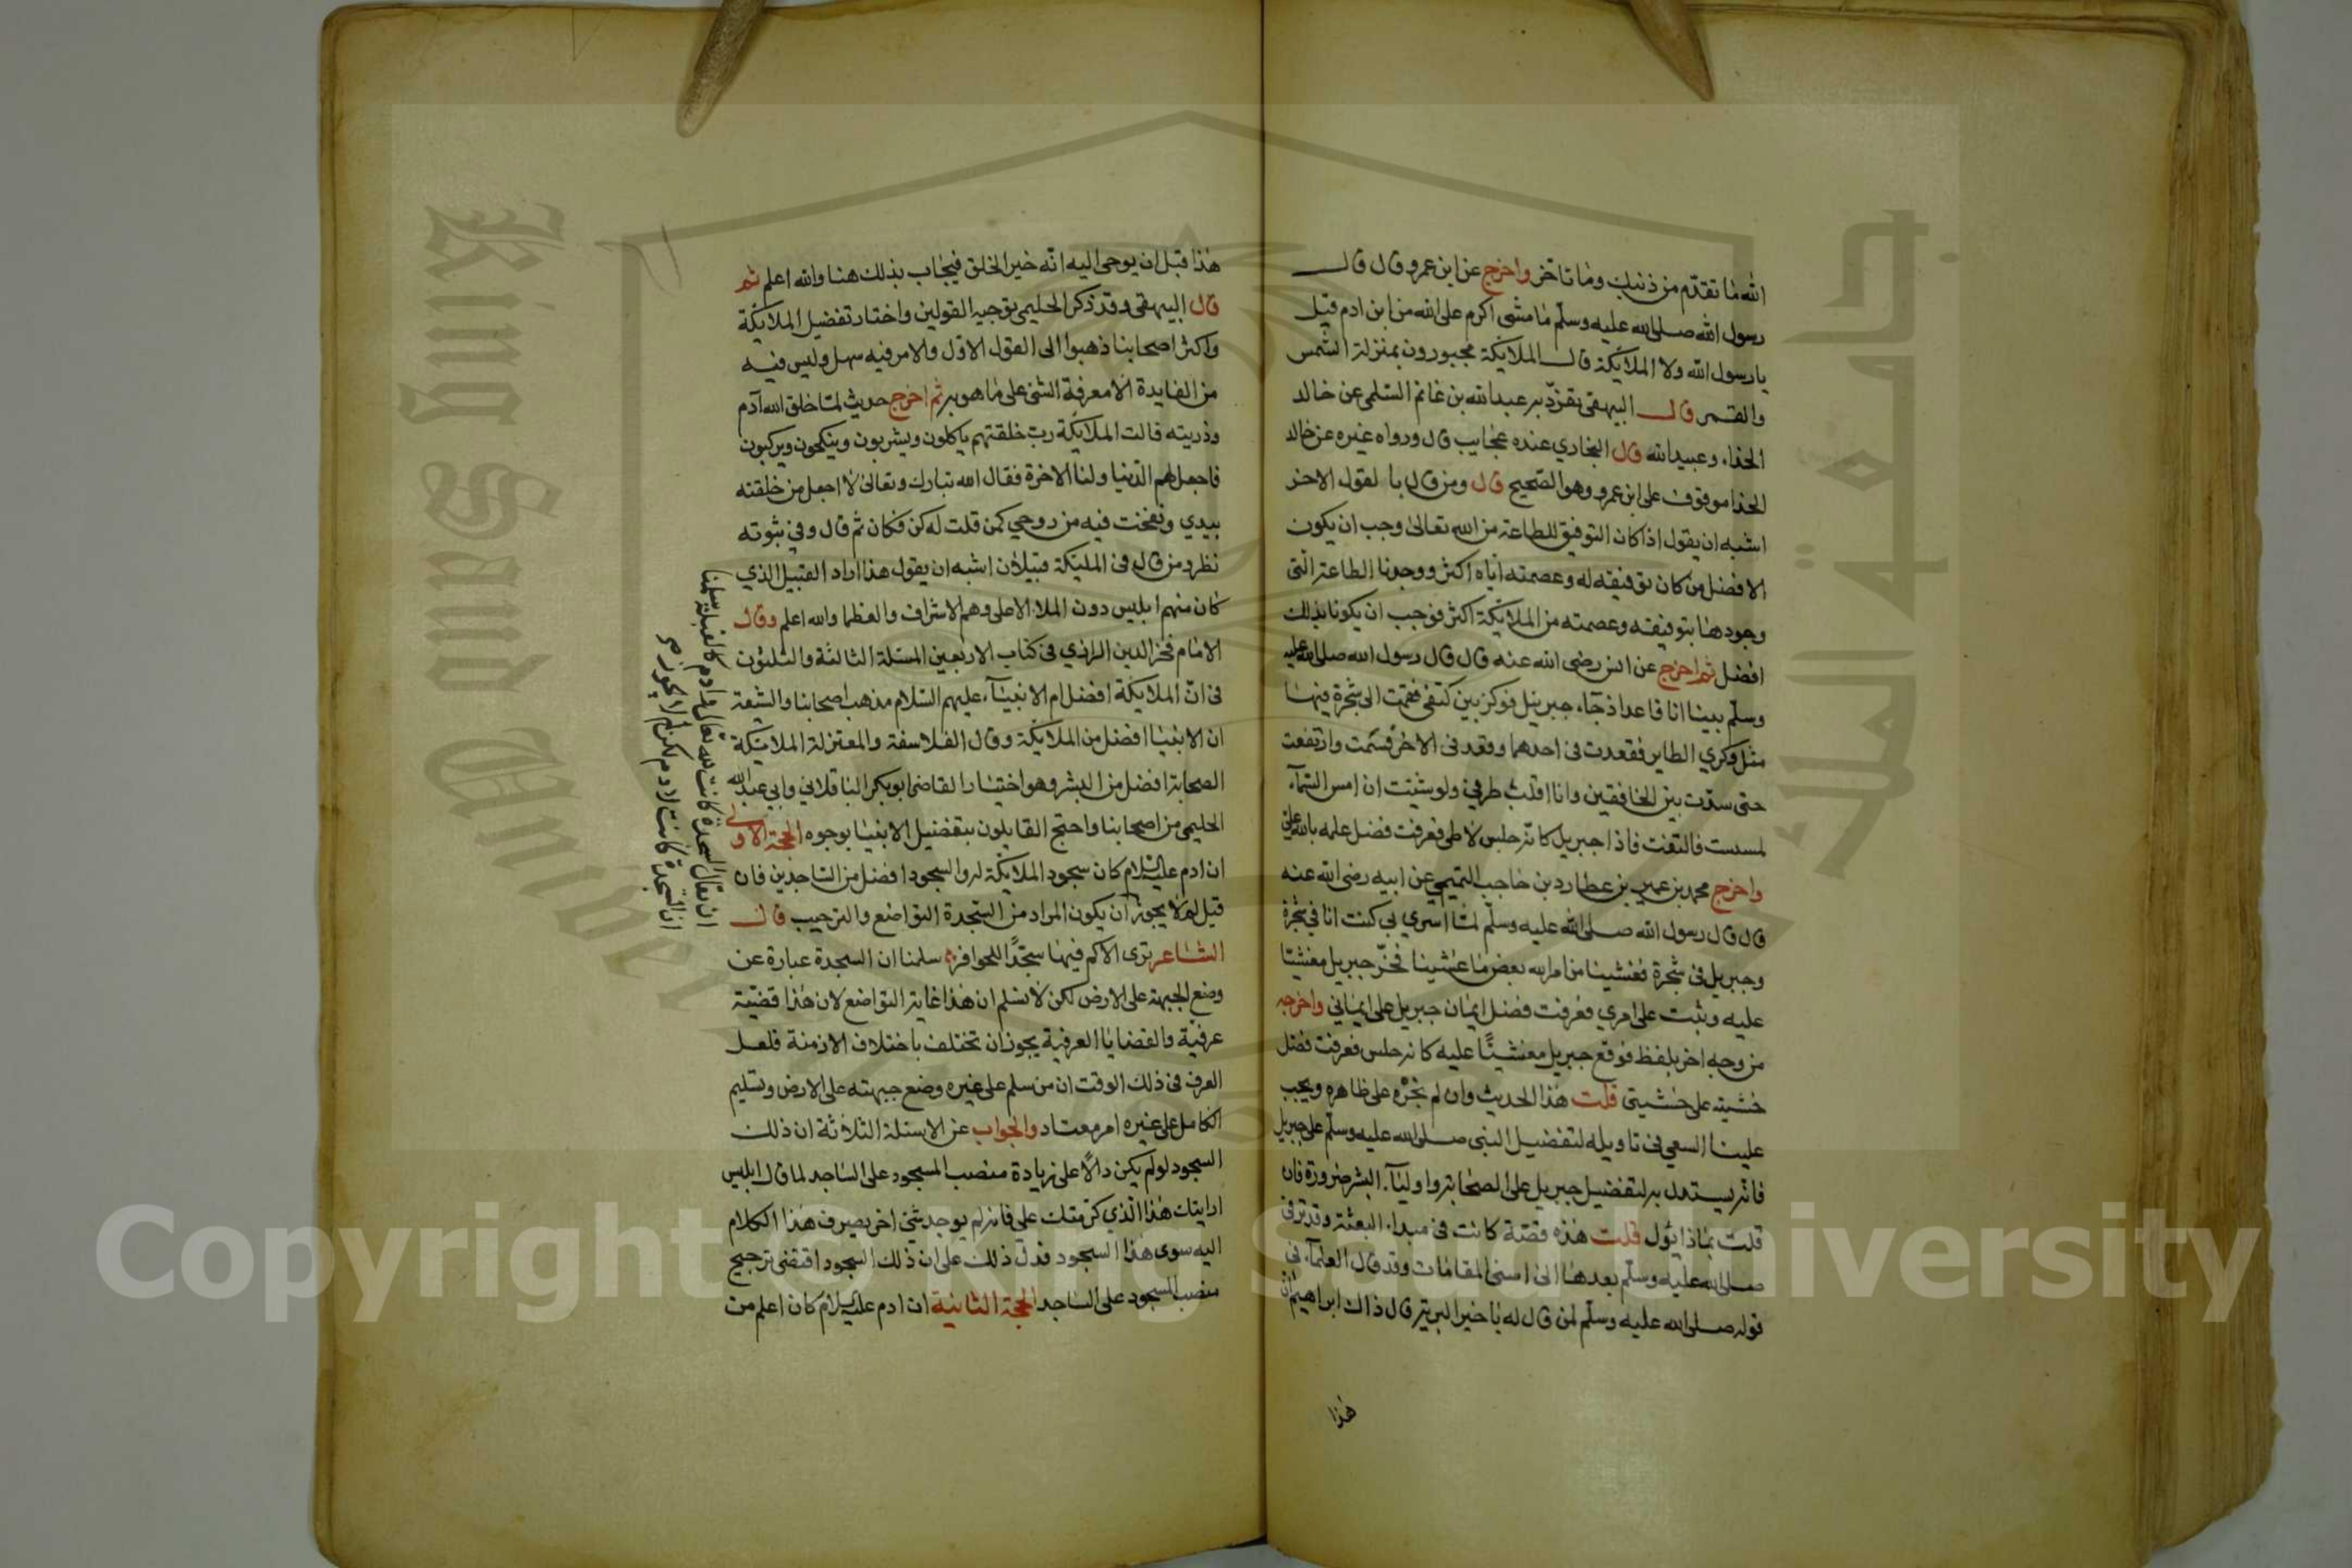 الله ما تقدّم من ذنبك وما تأخر واخرج عن ابن عمرو قال قال
رسول الله صلى الله عليه وسلّم ما مشى اكرم على الله من ابن ادم قيل
يا رسول الله ولا الملائكة قال الملائكة مجبورون بمنزلة الشمس
والقمر قال البيهقي تفرّد به عبد الله بن غانم السّلمي عن خالد
الحذاء وعبيد الله قال البخاري عنده عجايب قال ورواه غيره عن خالد
الحذا موقوف على ابن عمرو وهو الصّحيح قال ومن قال با لقول الاخر
اشبه ان يقول اذا كان التوفيق للطاعة من الله تعالى وجب ان يكون
الافضل من كان توفيقه له وعصمته اياه اكثر ووجدنا الطاعة الّتي
وجودها بتوفيقه وعصمته من الملائكة اكثر فوجب ان يكونا بذلك
افضل ثم اخرج عن انس رضى الله عنه قال قال رسول الله صلى الله عليه
وسلّم بينا انا قاعد اذ جآء جبريل فوكز بين كتفى فقمت الى شجرة فيها
مثل وكري الطاير فقعدت في احدهما وقعد في الاخر فسمت وارتفعت
حتى سدّت بين الخافقين وانا اقلب طرفي ولو شئت ان امس السّمآء
لمسست فالتفت فاذا جبريل كانه حلس لاطى فعرفت فضل علمه بالله علي
واخرج محمد بن عمير بن عطارد بن حاجب التميمي عن ابيه رضى الله عنه
قال قال رسول الله صلى الله عليه وسلّم لمّا اسري بي كنت انا في شجرة
وجبريل في شجرة فغشينا من امر الله بعض ما غشينا فخرّ جبريل مغشيّا
عليه وثبت على امري فعرفت فضل ايمان جبريل على ايماني واخرجه
من وجه اخر بلفظ فوقع جبريل مغشيًّا عليه كانه حلس فعرفت فضل
خشيته على خشيتي قلت هذا الحديث وان لم نجره على ظاهره ويجب
علينا السعي في تاويله لتفضيل النبى صلى الله عليه وسلّم على جبريل
فانه يستدل به لتفضيل جبريل على الصحابة واوليآء البشر ضرورة فان
قلت بماذا يؤل قلت هذه قصّة كانت في مبداء البعثة وقد ترقى
صلى الله عليه وسلّم بعدها الى اسنى المقامات وقد قال العلمآء في
قوله صلى الله عليه وسلّم لمن قال له يا خير البرية قال ذاك ابراهيم ان
هذا
هذا قبل ان يوحى اليه انّه خير الخلق فيجاب بذلك هنا والله اعلم ثم
قال البيهقى وقد ذكر الحليمي توجيه القولين واختار تفضيل الملائكة
واكثر اصحابنا ذهبوا الى القول الاوّل والامر فيه سهل وليس فيه
من الفايدة الا معرفة الشئ على ما هو به ثم اخرج حديث لمّا خلق الله آدم
وذريته قالت الملائكة ربّ خلقتهم ياكلون ويشربون وينكحون ويركبون
فاجعل لهم الدّنيا ولنا الاخرة فقال الله تبارك وتعالى لا اجعل من خلقته
بيدي ونفخت فيه من روحي كمن قلت له كن فكان ثم قال وفي ثبوته
نظر ومن قال في الملئكة قبيلان اشبه ان يقول هذا اراد القبيل الذي
كان منهم ابليس دون الملا الاعلى وهم الاشراف والعظما والله اعلم وقال
الامام فخر الدين الرازي في كتاب الاربعين المسئلة الثالثة والثلثون
في انّ الملائكة افضل ام الانبيآء عليهم السّلام مذهب اصحابنا والشيعة
ان الانبيا افضل من الملائكة وقال الفلاسفة والمعتزلة الملائكة
الصحابة افضل من البشر وهو اختيار القاضى ابو بكر الباقلاني وابي عبد الله
الحليمي من اصحابنا واحتج القايلون بتفضيل الانبيا بوجوه الحجة الاولى
ان ادم عليه السّلام كان سجود الملائكة له والسجود افضل من السّاجدين فان
قيل لم لا يجوز ان يكون المراد من السّجدة التواضع والترحيب قال
الشاعر ترى الاكم فيها سجّدًا للحوافر سلمنا ان السجدة عبارة عن
وضع الجبهة على الارض لكن لا نسلم ان هذا غاية التواضع لان هذا قضيّة
عرفيّة والقضايا العرفية يجوز ان تختلف باختلاف الازمنة فلعل
العرف في ذلك الوقت ان من سلم على غيره وضع جبهته على الارض وتسليم
الكامل على غيره امر معتاد والجواب عن الاسئلة الثلاثة ان ذلك
السجود لو لم يكن دالًا على زيادة منصب المسجود على الساجد لما قال ابليس
ارايتك هذا الّذي كرّمت علي فانه لم يوجد شئ اخر يصرف هذا الكلام
اليه سوى هذا السجود فدلّ ذلك على ان ذلك السجود اقتضى ترجيح
منصب المسجود على الساجد الحجة الثانية ان ادم عليه السلام كان اعلم من
ان السّجدة كانت لادم لكن لم لا يجوز
ان يقال السجدة كانت لله تعالى وادم كالقبلة سلمنا
King Saud University
جامعة الملك
Copyright © King Saud University